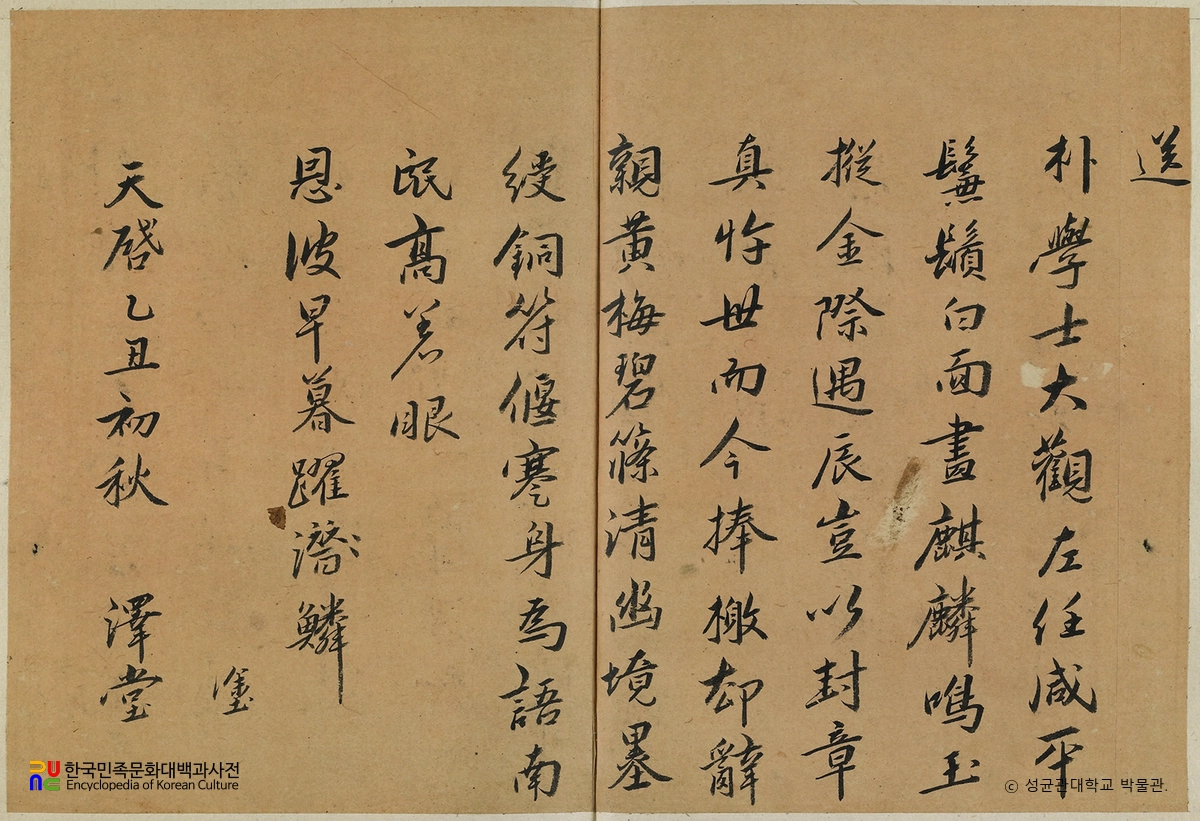 送
朴學士大觀左任咸平
鬑鬚白面畫麒麟鳴玉
摐金際遇辰豈以封章
真忤世而今捧檄却辭
親黃梅碧篠清幽境墨
綬銅符偃蹇身為語南
氓高著眼
恩波早暮躍潛鱗
塗
天啓乙丑初秋 澤堂
한국민족문화대백과사전
Encyclopedia of Korean Culture
ⓒ 성균관대학교 박물관.